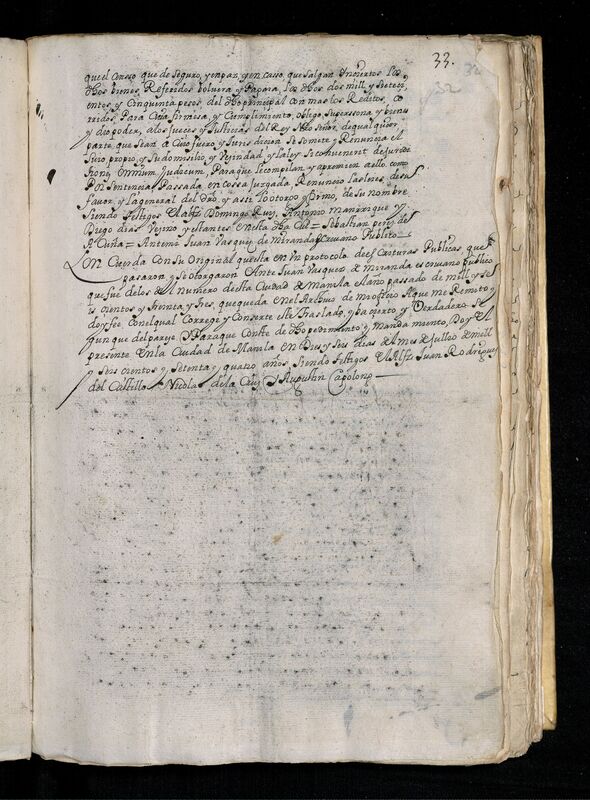 33.
32
que el censo que de seguro, y en pan, y en casso, que salgan Inçiertos los
dhos bienes Referidos bolvera y Pagara, los dhos dos mill, y Setecien
entos y Cinquenta pesos del dho prinçipal con mas los Reditos, co
rridos, Para Cuia firmesa, y Cumplimiento, obligo Supersona y bienes
y dio poder, a los Jueces y Justicias del Rey Nro Señor, de qual quier
parte que sean a Cuio fuero y Juris diçion se Somete y Renuncia el
Suio propio, y Su domisilio y Vezindad y la ley Si convenerit de juridi
tione, omnium Judicum, Para que le compelan y apremien a ello como
Por Sentencia Passada en cossa Juzgada Renuncio las leies de su
favor, y la general del dro, y assi lo otorgo y firmo, de su nombre
Siendo testigos el alfz Domingo Ruiz, Antonio manrrique y
Diego dias Vezino y estantes en esta dha Ciud = Sebastian perez de
Acuña = Antemi Juan Vasquez de miranda Escrivano Publico
Con Cuerda Con Su Original que esta en Un protocolo de escrituras Publicas que
passaron y Se otorgaron Ante Juan Vasquez de miranda escrivano Publico
que fue de los del numero de esta Ciudad de Manila el año passado de mill y se
is cientos y treinta y tres que queda en el Archivo de mi offiçio A que me Remito y
doy fee, con el qual Corregi y Conserte este Traslado, y ba çierto y Verdadero Se
gun que del pareçe y Para que Conste de dho pedimento y mandamiento, Doy el
presente en la Ciudad de Manila en Dies y Seis dias del mes de Jullio de mill
y Seis cientos y Setenta y quatro años Siendo testigos el Alfz Juan Rodriguez
del Castillo Nicolas de la Cruz y Augustin Capolong